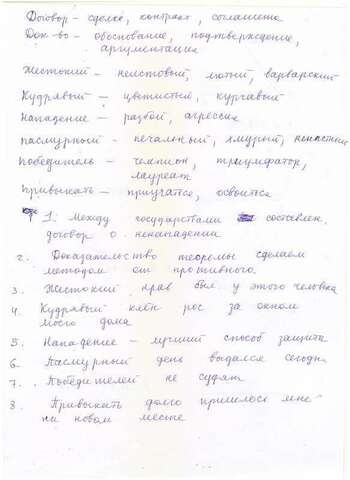 Договор – сделка, контракт, соглашение
Док-во – обоснование, подтверждение,
аргументация
Жестокий – неистовый, лютый, варварский
Кудрявый – цветистый, курчавый
Нападение – разбой, агрессия
пасмурный – печальный, хмурый, ненастный
Победитель – чемпион, триумфатор,
лауреат
Привыкать – приучатся, освоится
1. Между государствами составлен
договор о ненападении
2. Доказательство теоремы сделаем
методом от противного
3. Жестокий нрав был у этого человека
4. Кудрявый клён рос за окном
моего дома
5. Нападение – лучший способ защита
6. Пасмурный день выдался сегодн
7. Победителей не судят
8. Привыкать долго пришлось мне
на новом месте